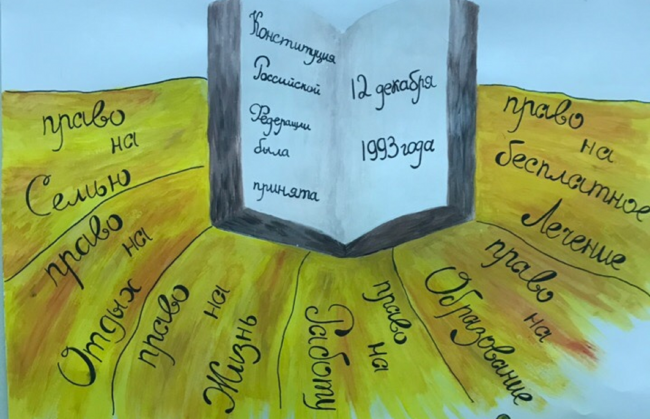 Конституция
Российской
Федерации
была
принята
12 декабря
1993 года
право
на
Семью
право
на
Отдых
право
на
Жизнь
право
на
Работу
право
на
Образование
право
на
бесплатное
Лечение